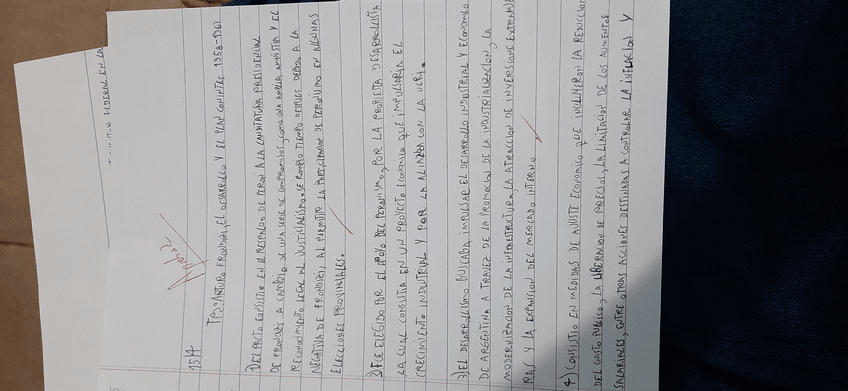 15/4
TP2: ARTURO FRONDIZI, EL DESARROLLO Y EL PLAN CONINTES 1958-1962
1) EL PACTO CONSISTIO EN EL RESPALDO DE PERON A LA CANDITATURA PRESIDENCIAL
DE FRONDIZI A CAMBIO DE UNA SERIE DE COMPROMISOS, COMO UNA AMPLIA AMNISTIA Y EL
RECONOCIMIENTO LEGAL AL JUSTICIALISMO. SE ROMPIO TIEMPO DESPUES DEBIDO A LA
NEGATIVA DE FRONDIZI, AL PERMITIR LA PARTICIPACION DE PERONISMO EN ALGUNAS
ELECCIONES PROVINCIALES.
3) FUE ELEGIDO POR EL APOYO DEL PERONISMO, POR LA PROPUESTA DESARROLLISTA
LA CUAL CONSISTIA EN UN PROYECTO ECONOMICO QUE IMPULSARIA EL
CRECIMIENTO INDUSTRIAL Y POR LA ALIANZA CON LA UCRI.
3) EL DESARROLLISMO BUSCABA IMPULSAR EL DESARROLLO INDUSTRIAL Y ECONOMICO
DE ARGENTINA A TRAVEZ DE LA PROMOCION DE LA INDUSTRIALIZACION, LA
MODERNIZACION DE LA INFRAESTRUCTURA, LA ATRACCION DE INVERSIONES EXTRANJE
RAS Y LA EXPANCION DEL MERCADO INTERNO
4) CONSISTIO EN MEDIDAS DE AJUSTE ECONOMICO QUE INCLUYERON LA REDUCCION
DEL GASTO PUBLICO, LA LIBERACION DE PRECIOS, LA LIMITACION DE LOS AUMENTOS
SALARIALES, ENTRE OTRAS ACCIONES DESTINADAS A CONTROLAR LA INFLACION Y
FEDERAL EN LA